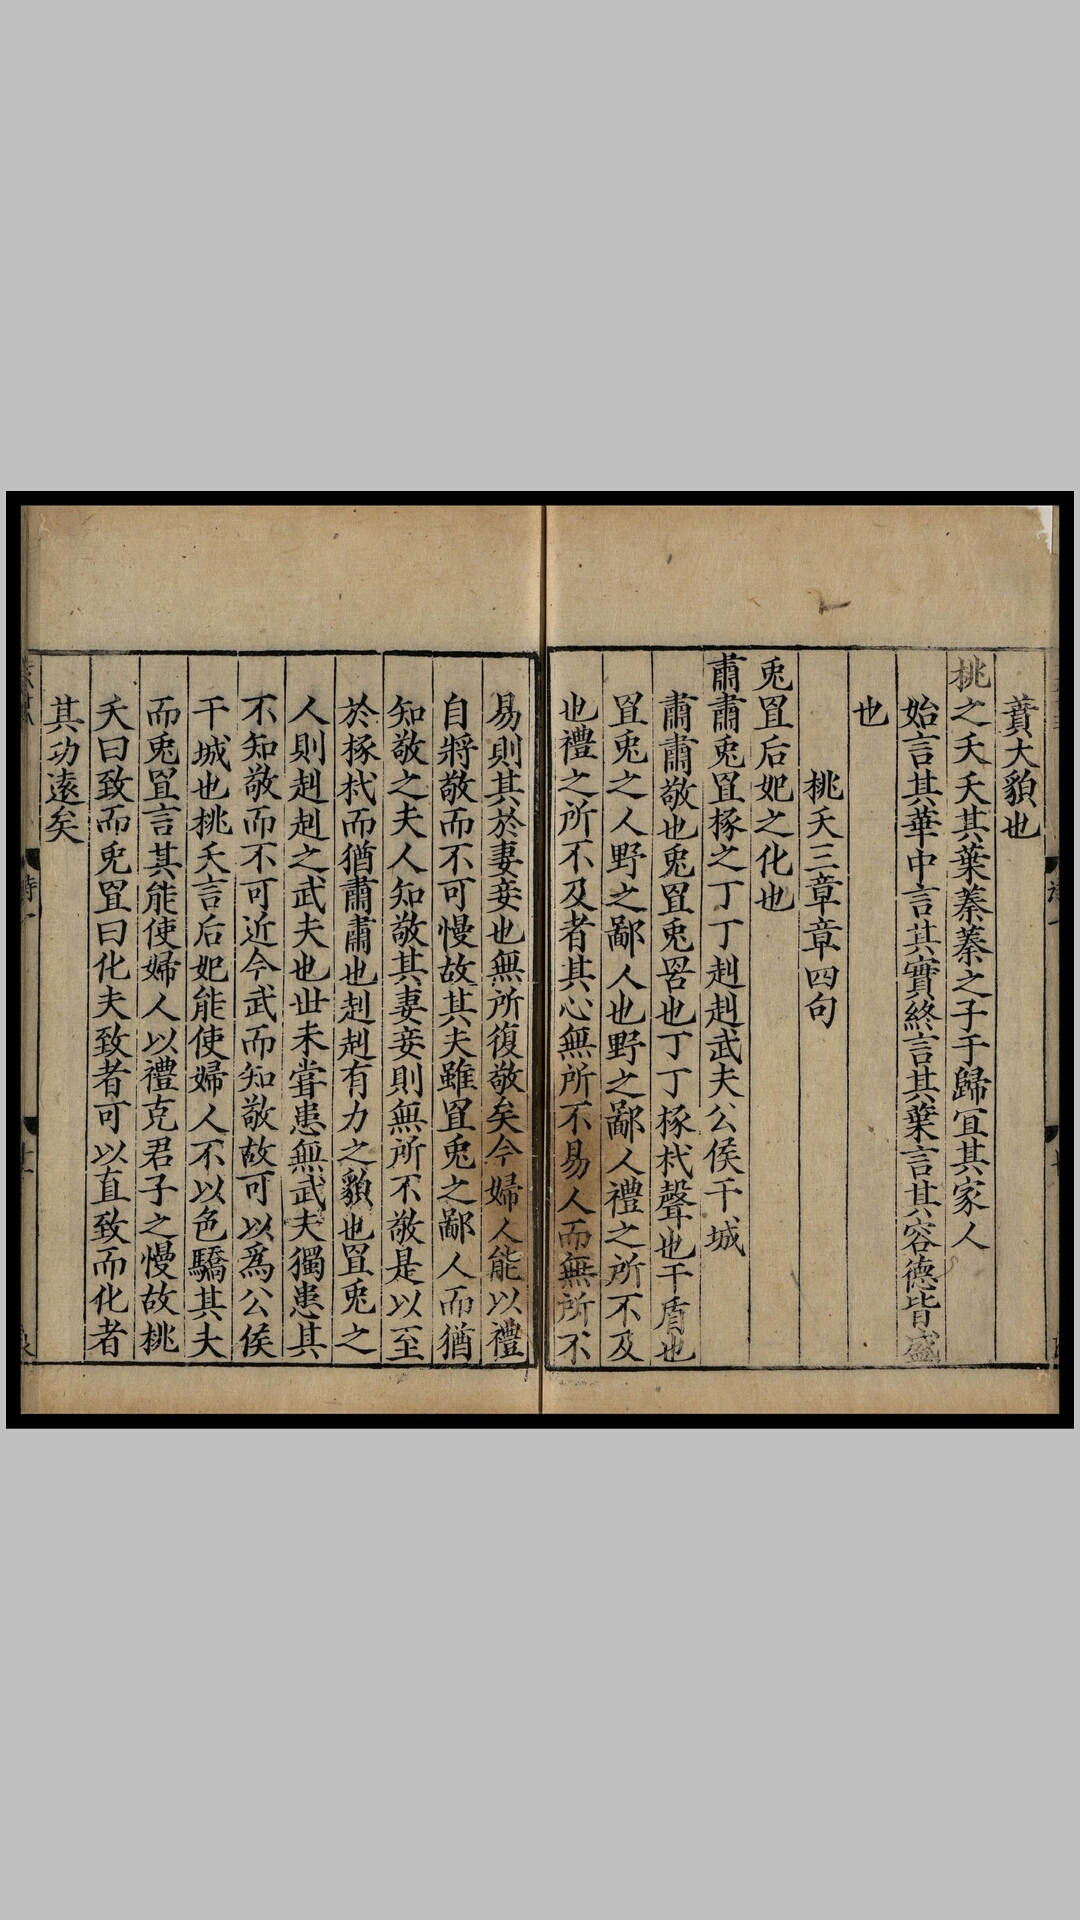 蕡大貌也
桃之夭夭其葉蓁蓁之子于歸冝其家人
始言其華中言其實終言其葉言其容德皆盛
也
桃夭三章章四句
兎罝后妃之化也
肅肅兎罝椓之丁丁赳赳武夫公侯干城
肅肅敬也兎罝兎罟也丁丁椓杙聲也干盾也
罝兎之人野之鄙人也野之鄙人禮之所不及
也禮之所不及者其心無所不易人而無所不
易則其於妻妾也無所復敬矣今婦人能以禮
自將敬而不可慢故其夫雖罝兎之鄙人而猶
知敬之夫人知敬其妻妾則無所不敬是以至
於椓杙而猶肅肅也赳赳有力之貌也罝兎之
人則赳赳之武夫也世未甞患無武夫獨患其
不知敬而不可近今武而知敬故可以爲公侯
干城也桃夭言后妃能使婦人不以色驕其夫
而兎罝言其能使婦人以禮克君子之慢故桃
夭曰致而兎罝曰化夫致者可以直致而化者
其功逺矣